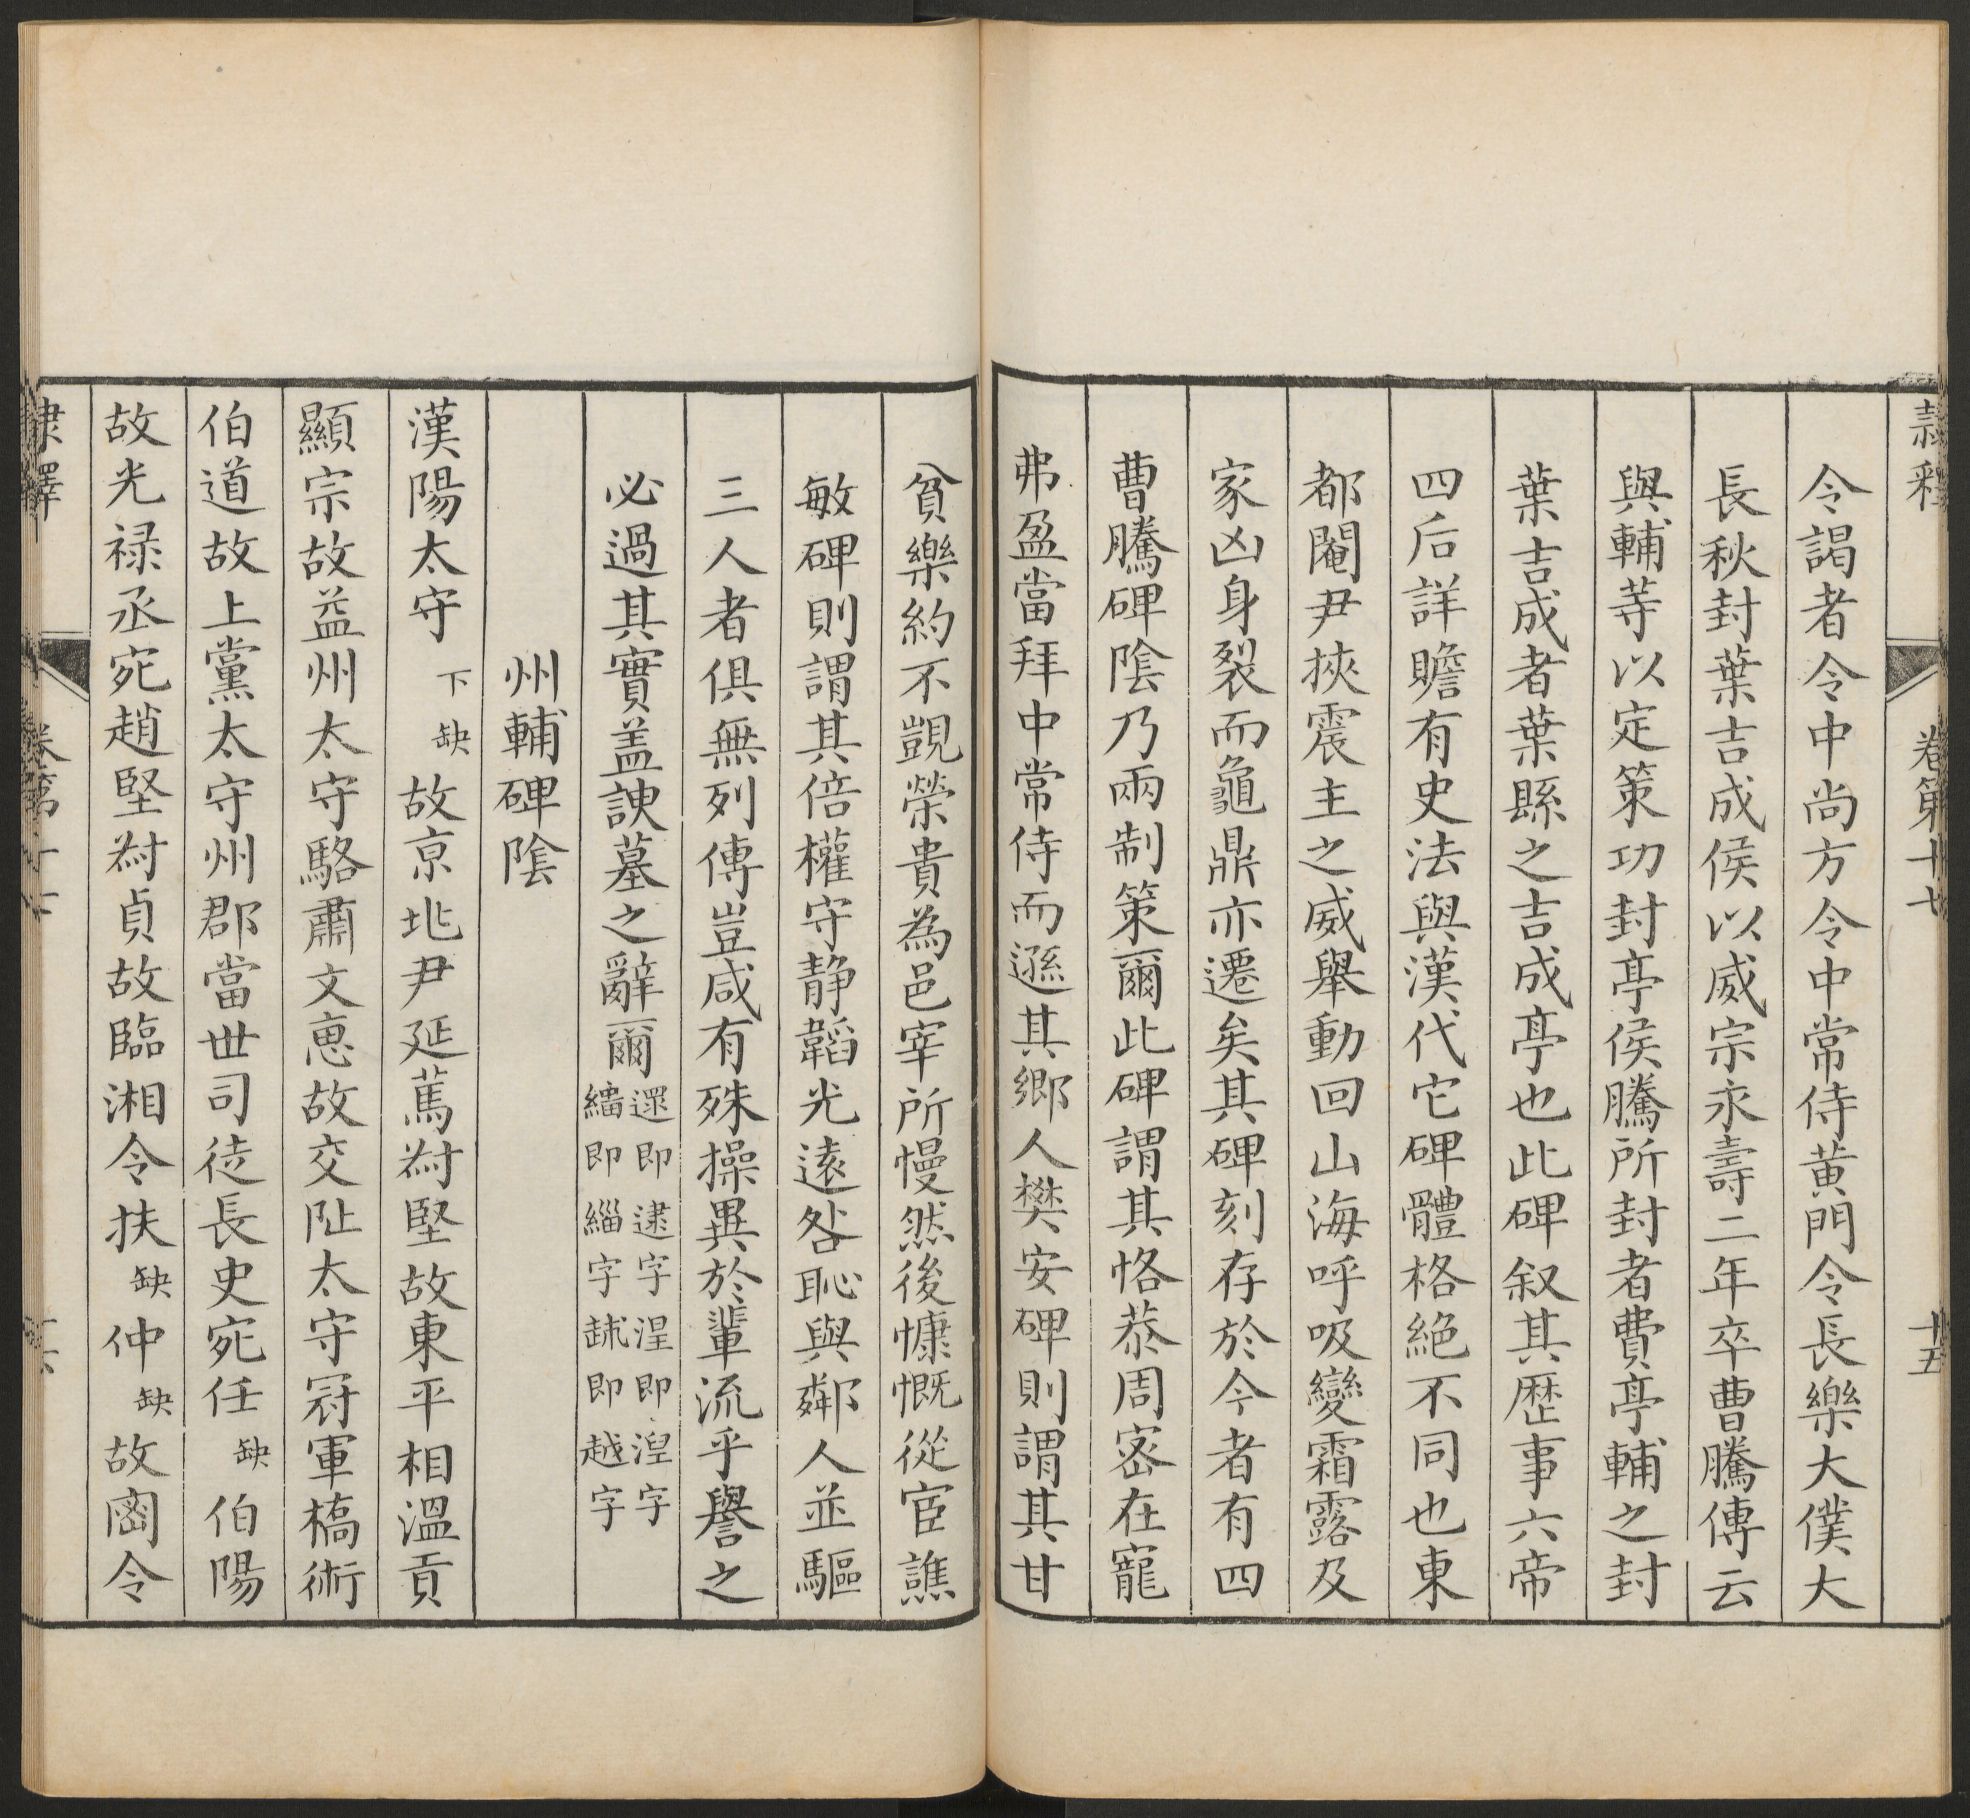 隷釋 卷第十七 十五
令謁者令中尚方令中常侍黄門令長樂大僕大
長秋封葉吉成侯以威宗永壽二年卒曹騰傳云
與輔等以定策功封亭侯騰所封者費亭輔之封
葉吉成者葉縣之吉成亭也此碑叙其歷事六帝
四后詳贍有史法與漢代它碑體格絶不同也東
都閹尹挾震主之威舉動回山海呼吸變霜露及
家凶身裂而龜鼎亦遷矣其碑刻存於今者有四
曹騰碑陰乃兩制策爾此碑謂其恪恭周密在寵
弗盈當拜中常侍而遜其鄉人樊安碑則謂其甘
貧樂約不覬榮貴為邑宰所慢然後慷慨從宦譙
敏碑則謂其倍權守静韜光遠咎恥與鄰人並驅
三人者俱無列傳豈咸有殊操異於輩流乎譽之
必過其實盖諛墓之辭爾還即逮字涅即湼字
繬即緇字䟣即越字
州輔碑陰
漢陽太守下缺故京兆尹延萬尌堅故東平相溫貢
顯宗故益州太守駱肅文惠故交阯太守冠軍槁術
伯道故上黨太守州郡當世司徒長史宛任缺伯陽
故光禄丞宛趙堅尌貞故臨湘令扶缺仲缺故鹵令
隷釋 卷第十七 十六